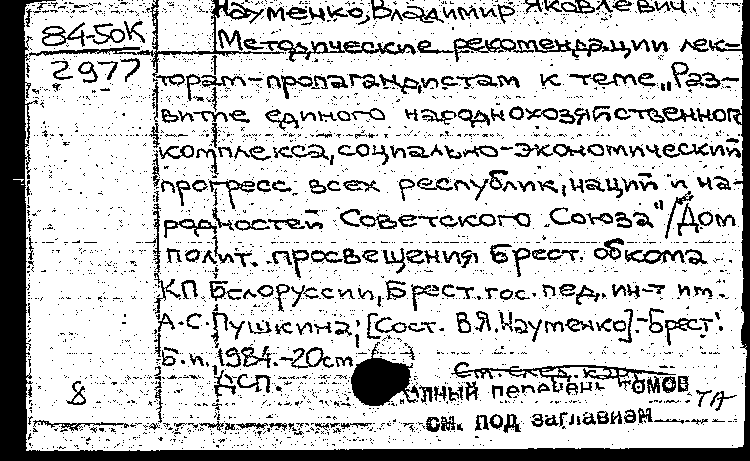 Науменко, Владимир Яковлевич.
84-5ОК
Методические рекомендации лек-
2977
торам-пропагандистам к теме „Раз-
витие единого народнохозяйственного
комплекса, социально-экономический
прогресс всех республик, наций и на-
родностей Советского Союза" / Дом
полит. просвещения Брест. обкома
КП Белоруссии, Брест. гос. пед. ин-т им.
А.С. Пушкина; [Сост. В.Я. Науменко].-Брест:
Б.и., 1984.-20см
См. след. карт.
8
ДСП.
полный перечень томов
ТА
см. под заглавием